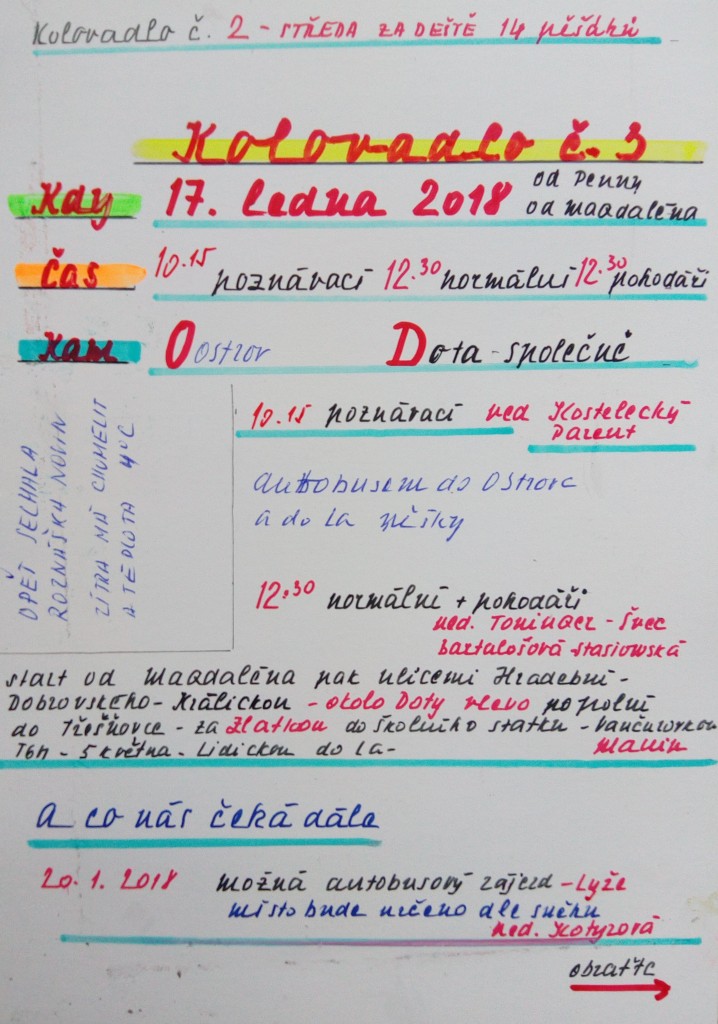 Kolovadlo č. 2 - STŘEDA ZA DEŠTĚ 14 pěšáků
Kolovadlo č. 3
Kdy 17. ledna 2018 od Penny
od Magdaléna
Čas 10.15 poznávací 12.30 normální 12.30 pohodáři
Kam O Ostrov Dota - společně
10.15 poznávací ved Kostelecký
Parent
OPĚT ŠECHALA
ROZNÁŠKU NOVIN
ZÍTRA MÁ CHUMELIT
A TEPLOTA 4°C
autobusem do Ostrova
a do La pěšky
12.30 normální + pohodáři
ved. Toninger - Švec
Bartalošová Stasiowská
start od Magdaléna pak ulicemi Hradební -
Dobrovského - Králickou - okolo Doty vlevo po polní
do Třešňovce - za Zlatkou do školního statku - Vančurovkou
T6M - 5 května - Lidickou do La -
A co nás čeká dále
20.1. 2018 možná autobusový zájezd - Lyže
místo bude určeno dle sněhu
ved. Kotyzová
obraťte